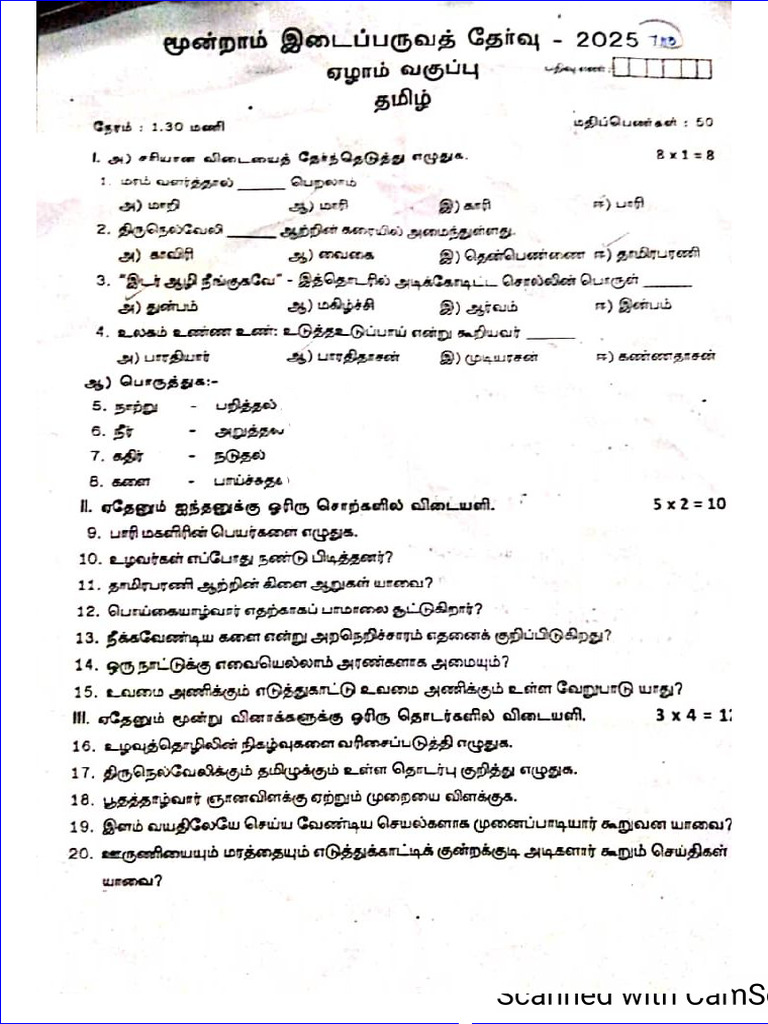 மூன்றாம் இடைப்பருவத் தேர்வு - 2025
ஏழாம் வகுப்பு பதிவு எண் :
தமிழ்
நேரம் : 1.30 மணி மதிப்பெண்கள் : 50
I. அ) சரியான விடையைத் தேர்ந்தெடுத்து எழுதுக. 8 x 1 = 8
1. மரம் வளர்த்தால் ______ பெறலாம்
அ) மாறி ஆ) மாரி இ) காரி ஈ) பாரி
2. திருநெல்வேலி ______ ஆற்றின் கரையில் அமைந்துள்ளது.
அ) காவிரி ஆ) வைகை இ) தென்பெண்ணை ஈ) தாமிரபரணி
3. "இடர் ஆழி நீங்குகவே" - இத்தொடரில் அடிக்கோடிட்ட சொல்லின் பொருள் ______
அ) துன்பம் ஆ) மகிழ்ச்சி இ) ஆர்வம் ஈ) இன்பம்
4. உலகம் உண்ண உண்: உடுத்தஉடுப்பாய் என்று கூறியவர் ______
அ) பாரதியார் ஆ) பாரதிதாசன் இ) முடியரசன் ஈ) கண்ணதாசன்
ஆ) பொருத்துக:-
5. நாற்று - பறித்தல்
6. நீர் - அறுத்தல்
7. கதிர் - நடுதல்
8. களை - பாய்ச்சுதல்
II. ஏதேனும் ஐந்தனுக்கு ஓரிரு சொற்களில் விடையளி. 5 x 2 = 10
9. பாரி மகளிரின் பெயர்களை எழுதுக.
10. உழவர்கள் எப்போது நண்டு பிடித்தனர்?
11. தாமிரபரணி ஆற்றின் கிளை ஆறுகள் யாவை?
12. பொய்கையாழ்வார் எதற்காகப் பாமாலை சூட்டுகிறார்?
13. நீக்கவேண்டிய களை என்று அறநெறிச்சாரம் எதனைக் குறிப்பிடுகிறது?
14. ஒரு நாட்டுக்கு எவையெல்லாம் அரண்களாக அமையும்?
15. உவமை அணிக்கும் எடுத்துகாட்டு உவமை அணிக்கும் உள்ள வேறுபாடு யாது?
III. ஏதேனும் மூன்று வினாக்களுக்கு ஓரிரு தொடர்களில் விடையளி. 3 x 4 = 12
16. உழவுத்தொழிலின் நிகழ்வுகளை வரிசைப்படுத்தி எழுதுக.
17. திருநெல்வேலிக்கும் தமிழுக்கும் உள்ள தொடர்பு குறித்து எழுதுக.
18. பூதத்தாழ்வார் ஞானவிளக்கு ஏற்றும் முறையை விளக்குக.
19. இளம் வயதிலேயே செய்ய வேண்டிய செயல்களாக முனைப்பாடியார் கூறுவன யாவை?
20. ஊருணியையும் மரத்தையும் எடுத்துக்காட்டிக் குன்றக்குடி அடிகளார் கூறும் செய்திகள்
யாவை?
Scanned with CamSc